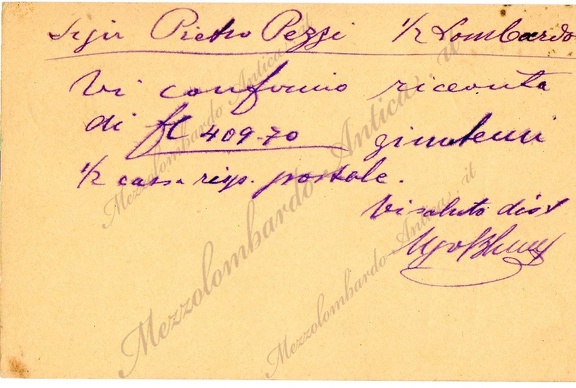 Sigr Pietro Pezzi 1/2 Lombardo
Vi confermo ricevuta
di fl 409.70 giuntemi
1/2 cassa risp. postale.
Vi saluto dist
Mezzolombardo Antica...it
Mezzolombardo Antica...it